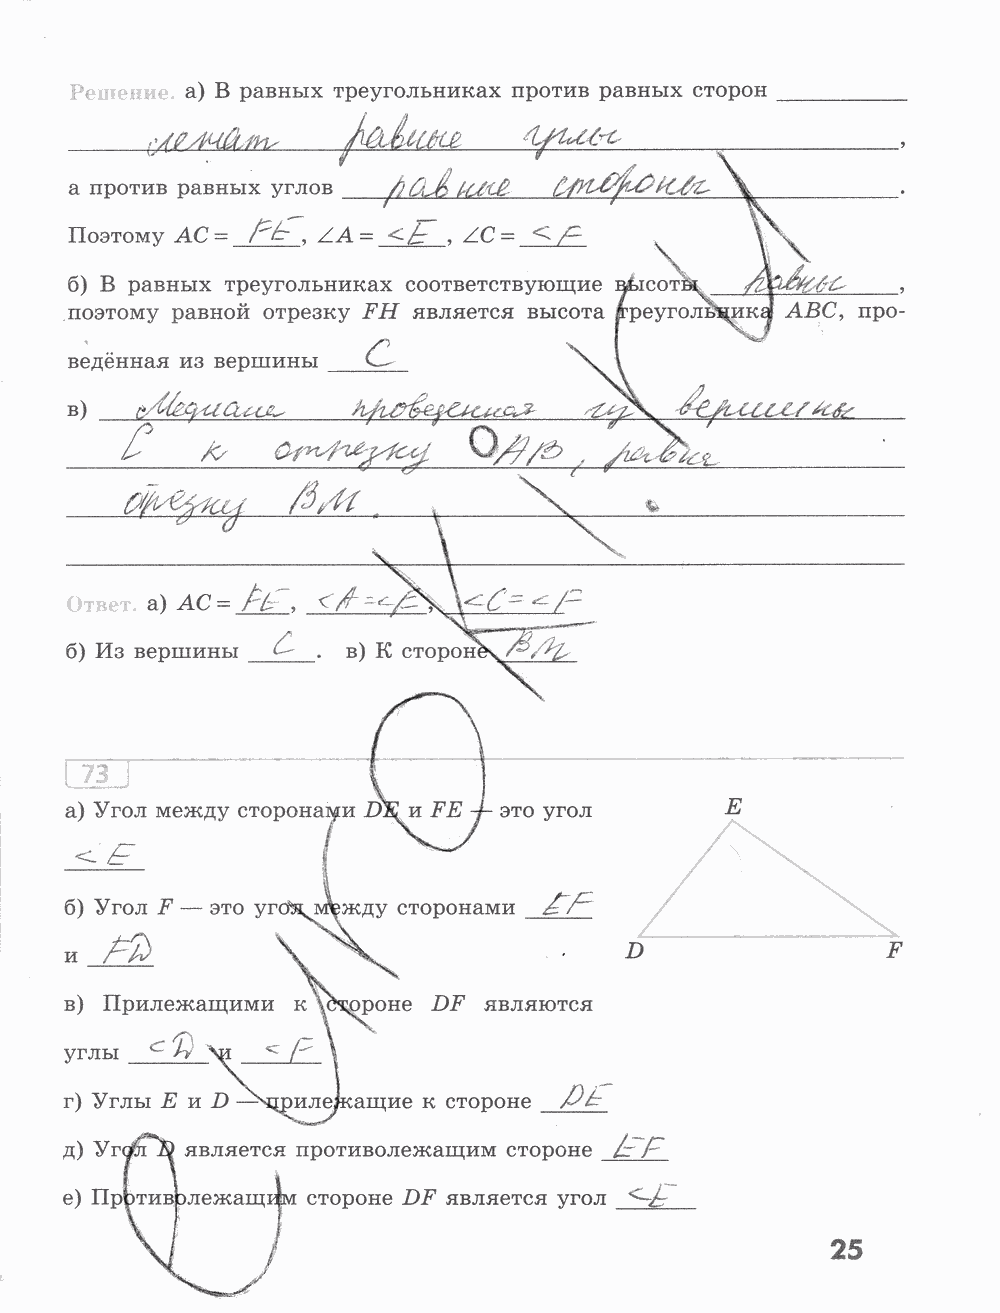 Решение. а) В равных треугольниках против равных сторон
лежат равные углы,
а против равных углов равные стороны.
Поэтому AC = FE, ∠A = <E, ∠C = <F
б) В равных треугольниках соответствующие высоты равны,
поэтому равной отрезку FH является высота треугольника ABC, про-
ведённая из вершины C
в) Медиана проведенная из вершины
C к отрезку AB, равна
отрезку BM.
Ответ. а) AC = FE, <A=<E, <C=<F
б) Из вершины C. в) К стороне BM
73
а) Угол между сторонами DE и FE — это угол
<E
б) Угол F — это угол между сторонами EF
и FD
в) Прилежащими к стороне DF являются
углы <D и <F
г) Углы E и D — прилежащие к стороне DE
д) Угол D является противолежащим стороне EF
е) Противолежащим стороне DF является угол <E
E
D F
25